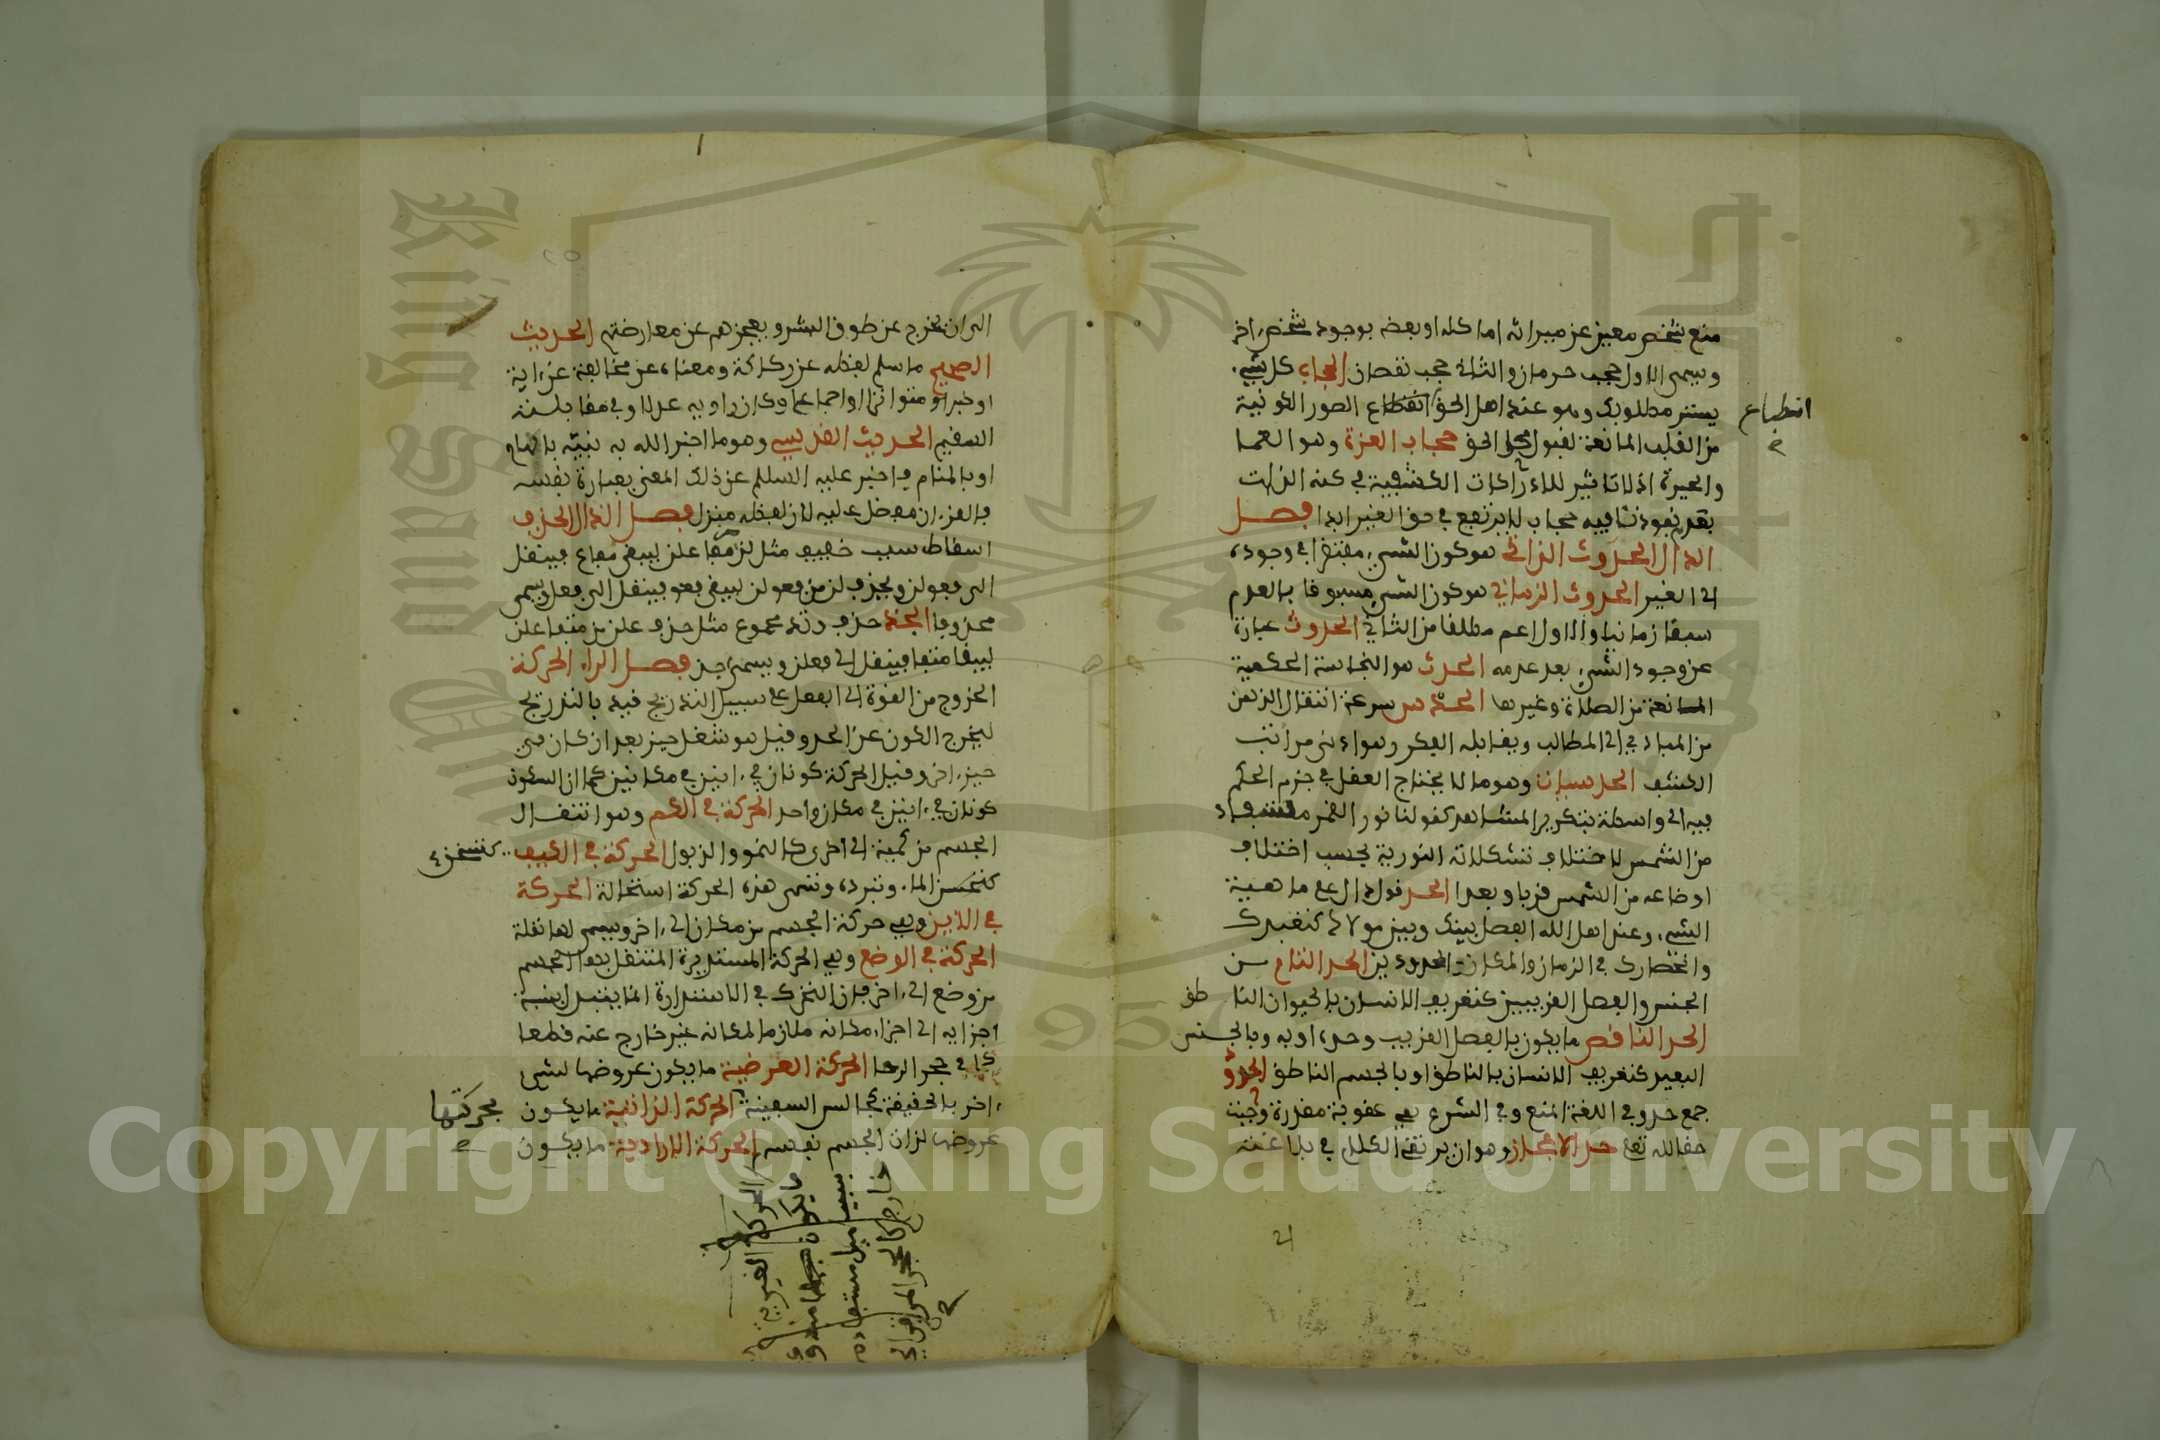 منع شخص معين عن ميراثه اما كله او بعضه بوجود شخص اخر
ويسمى الاول حجب حرمان والثاني حجب نقصان الحجاب كل شيء
يستتر مطلوبك وهو عند اهل الحق انقطاع الصور الكونية
انطباع
من القلب المانعة لقبول تجلي الحق حجاب العزة وهو العما
والحيرة اذ لا تاثير للادراكات الكشفية في كنه الذات
بعدم نفوذها فيه حجاب لا يرتفع في حق الغير ابدا فصل
الدال الحدوث الذاتي هو كون الشيء مفتقرا في وجوده
الى الغير الحدوث الزماني هو كون الشيء مسبوقا بالعدم
سبقا زمانيا والاول اعم مطلقا من الثاني الحدوث عبارة
عن وجود الشيء بعد عدمه الحدث هو النجاسة الحكمية
المانعة من الصلاة وغيرها الحدس سرعة انتقال الذهن
من المبادي الى المطالب ويقابله الفكر وهو ادنى مراتب
الكشف الحدسيات وهو ما لا يحتاج العقل في جزم الحكم
فيه الى واسطة بتكرير المشاهد كقولنا نور القمر مستفاد
من الشمس لاختلاف تشكلاته النورية بحسب اختلاف
اوضاعه من الشمس قربا وبعدا الحد قول دال على ماهية
الشيء وعند اهل الله الفصل بينك وبين مولاك كتعبدك
وانحصارك في الزمان والمكان المحدودين الحد التام من
الجنس والفصل القريبين كتعريف الانسان بالحيوان الناطق
الحد الناقص ما يكون بالفصل القريب وحده او به وبالجنس
البعيد كتعريف الانسان بالناطق او بالجسم الناطق الحدود
جمع حد وفي اللغة المنع وفي الشرع هي عقوبة مقدرة وجبت
حقا لله تعالى حد الاعجاز وهو ان يرتقي الكلام في بلاغته
الى ان يخرج عن طوق البشر ويعجزهم عن معارضته الحديث
الصحيح ما سلم لفظه عن ركاكة ومعناه عن مخالفة عن اية
او خبر او متواترا او اجماع وكان راويه عدلا وفي مقابلته
السقيم الحديث القدسي وهو ما اخبر الله به نبيه بالهام
او بالمنام فاخبر عليه السلام عن ذلك المعنى بعبارة نفسه
فالقران مفضل عليه لان لفظه منزل فصل الذال الحذف
اسقاط سبب خفيف مثل لن مفاعلن ليبقى مفاع فينقل
الى فعولن ويحذف لن من فعولن ليبقى فعو فينقل الى فعل ويسمى
محذوفا الحذذ حذف وتد مجموع مثل حذف علن من متفاعلن
ليبقا متفا فينقل الى فعلن ويسمى احذ فصل الراء الحركة
الخروج من القوة الى الفعل على سبيل التدريج قيد بالتدريج
ليخرج الكون عن الحد وقيل هو شغل حيز بعد ان كان في
حيز اخر وقيل الحركة كونان في انين في مكانين كما ان السكون
كونان في انين في مكان واحد الحركة في الكم وهو انتقال
الجسم من كمية الى اخرى كالنمو والذبول الحركة في الكيف
كتسخن
كتسخن الماء وتبرده وتسمى هذه الحركة استحالة الحركة
في الاين وهي حركة الجسم من مكان الى اخر ويسمى لها نقلة
الحركة في الوضع وهي الحركة المستديرة المنتقل بها الجسم
من وضع الى اخر فان التحرك في الاستدارة انما يتبدل نسبة
اجزايه الى اجزاء مكانه ملازما لمكانه غير خارج عنه قطعا
كما في حجر الرحا الحركة العرضية ما يكون عروضها لشيء
اخر بالحقيقة كجالس السفينة الحركة الذاتية ما يكون
بحركتها
عروضها لذات الجسم نفسه الحركة الارادية ما يكون
الحركة القسرية
ما يكون
بسبب ميل مستفاد من
خارج كالحجر المرمي